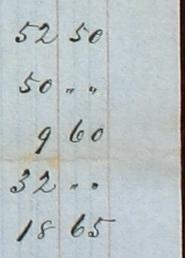 52 50
50 " "
9 60
32 " "
18 65